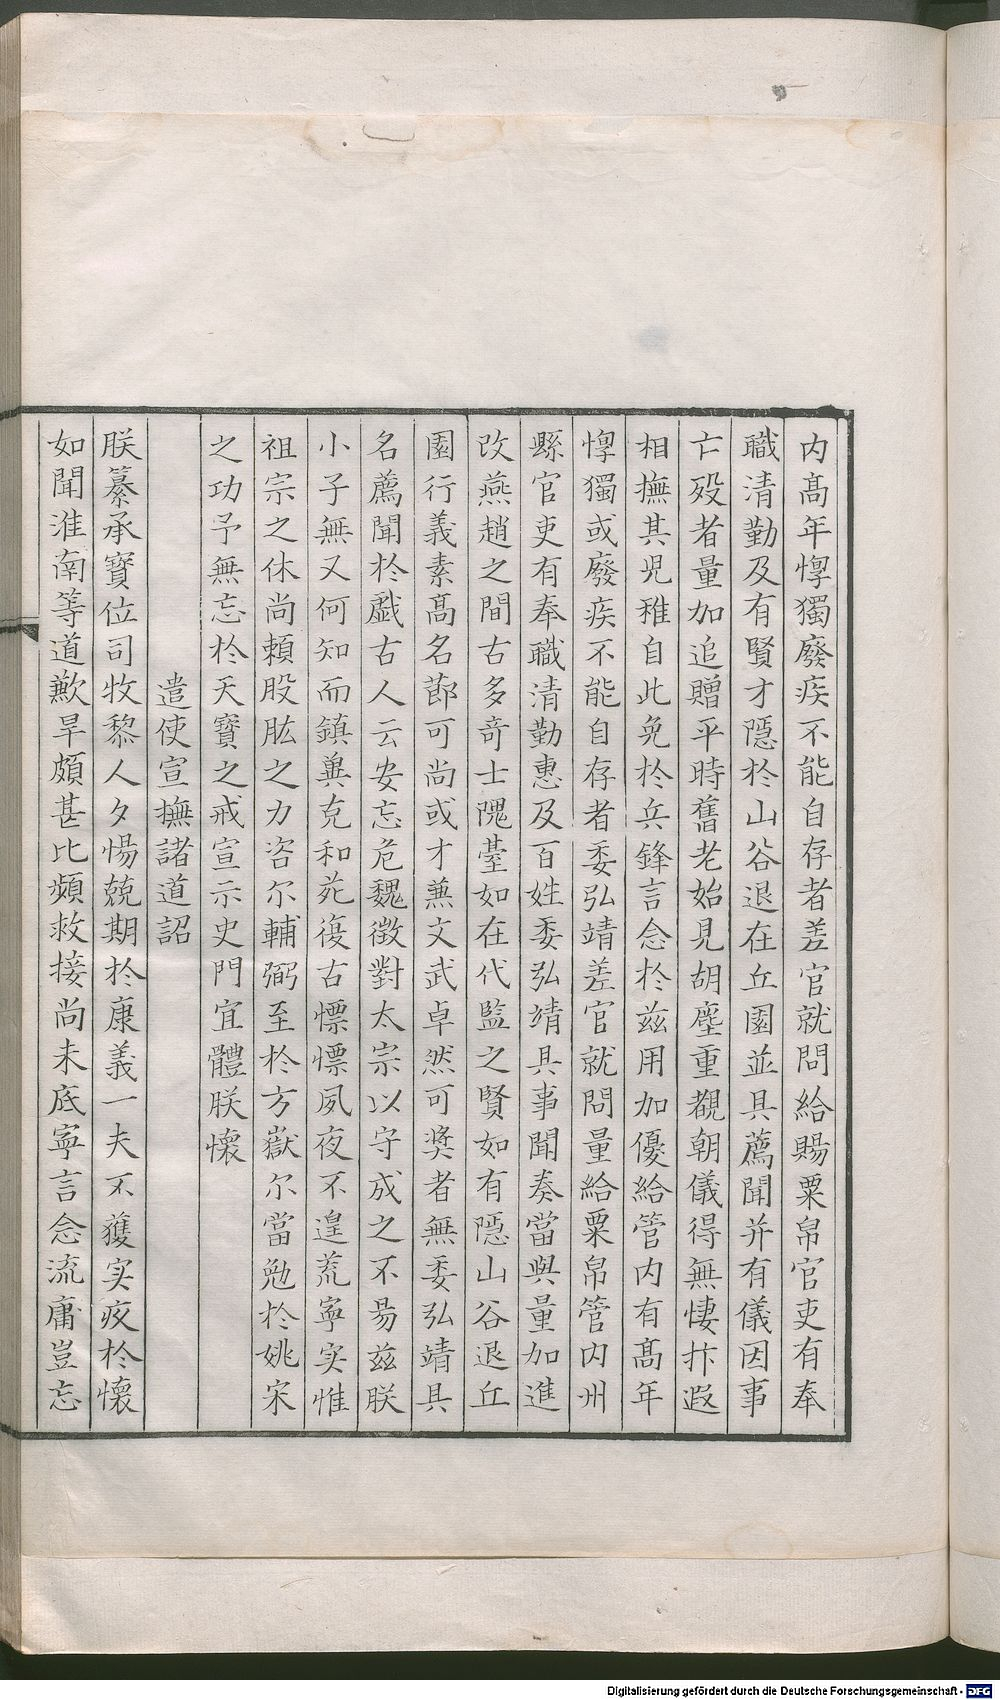 内髙年惸獨廢疾不能自存者差官就問給賜粟帛官吏有奉
職清勤及有賢才隱於山谷退在丘園並具薦聞并有儀因事
亡歿者量加追贈平時舊老始見胡塵重覩朝儀得無悽抃遐
相撫其児稚自此免於兵鋒言念於兹用加優給管内有髙年
惸獨或廢疾不能自存者委弘靖差官就問量給粟帛管内州
縣官吏有奉職清勤惠及百姓委弘靖具事聞奏當與量加進
改燕趙之間古多竒士隗臺如在代監之賢如有隱山谷退丘
園行義素髙名莭可尚或才兼文武卓然可奨者無委弘靖具
名薦聞於戯古人云安忘危魏徴對太宗以守成之不昜兹朕
小子無又何知而鎮兾克和苑復古慓慓夙夜不遑荒寧实惟
祖宗之休尚賴股肱之力咨尔輔弼至於方嶽尔當勉於姚宋
之功予無忘於天寳之戒宣示史門宜體朕懷
遣使宣撫諸道詔
朕纂承寳位司牧黎人夕惕兢期於康義一夫不獲实疚於懷
如聞淮南等道歉旱頗甚比頻救接尚未底寧言念流庸豈忘
Digitalisierung gefördert durch die Deutsche Forschungsgemeinschaft - DFG